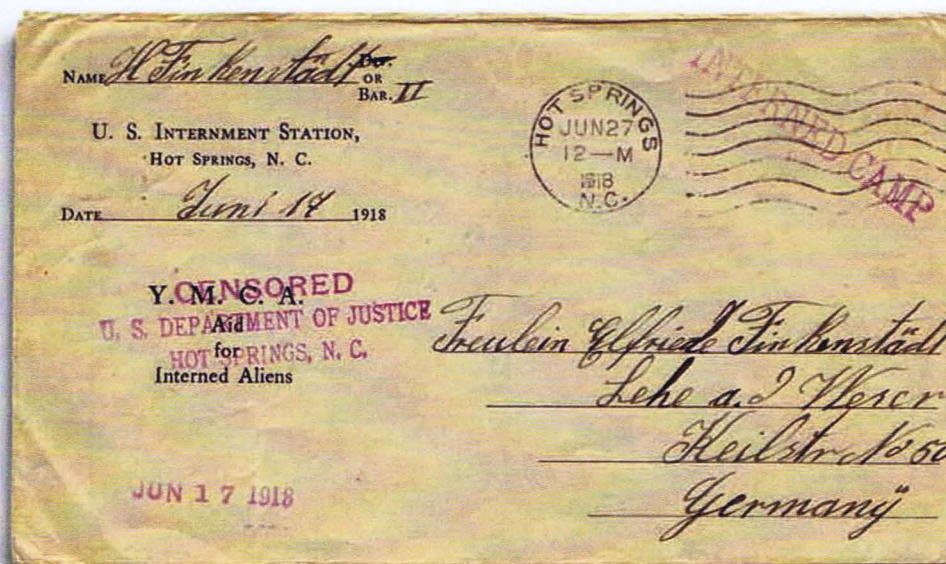 NAME H Finkenstädt Dor. OR BAR. II
U. S. INTERNMENT STATION,
HOT SPRINGS, N. C.
DATE Juni 17 1918
HOT SPRINGS
JUN 27
12—M
1918
N.C.
INTERNED CAMP
Y. M. C. A.
Aid
for
Interned Aliens
CENSORED
U. S. DEPARTMENT OF JUSTICE
HOT SPRINGS, N. C.
JUN 17 1918
Freulein Elfriede Finkenstädt
Lehe a. d Weser
Keilstr No 50
Germany